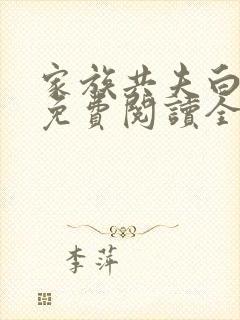 家族共夫白
免費閱讀全
李萍